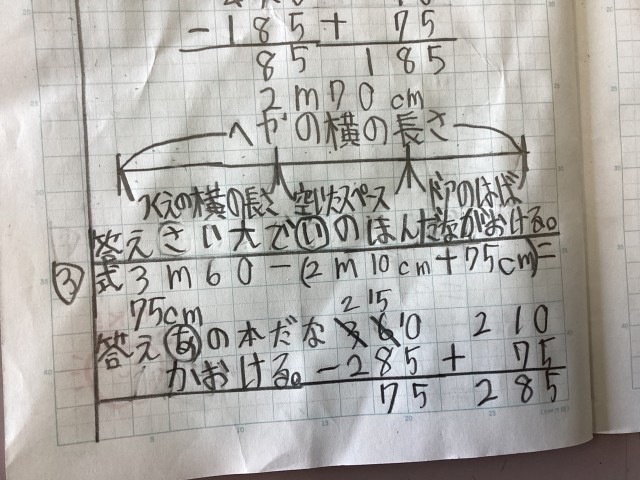 －185＋　75
85　185
2m70cm
へやの横の長さ
つくえの横の長さ　空いたスペース　ドアのはば
答えさい大でⓘのほんだながおける。
③式3m60－(2m10cm＋75cm)＝
75cm
215
答えあの本だな　360　210
がおける。－285＋　75
75　285